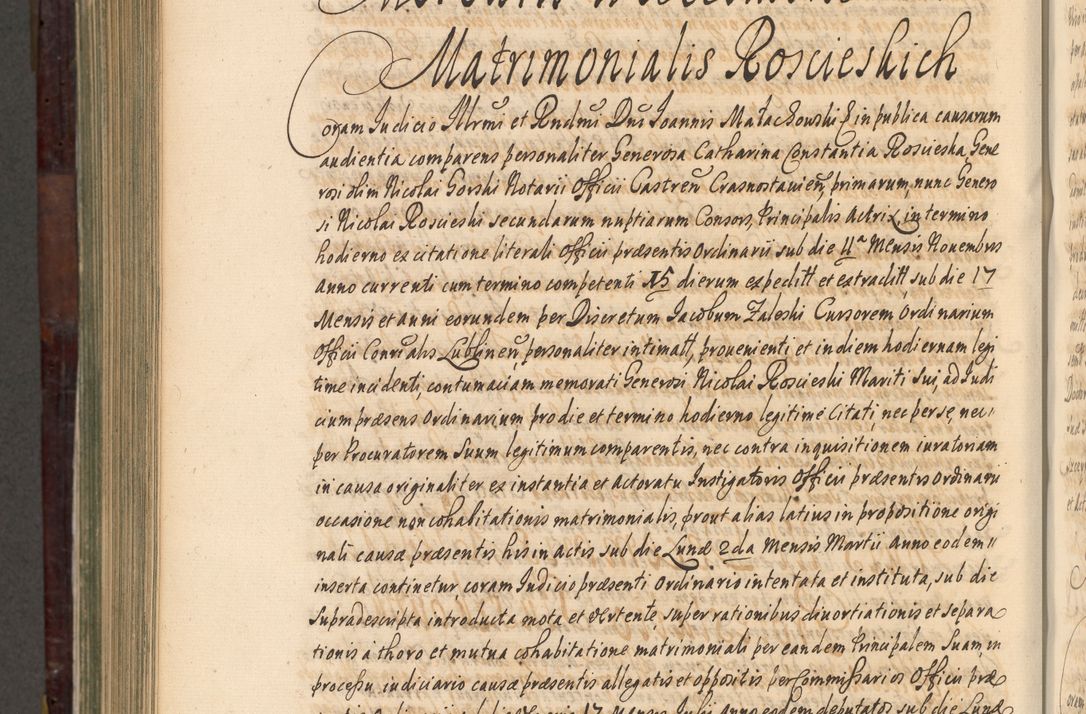 Matrimonialis Roscieskich
Coram Judicio Illrmi et Rndmi Dni Joannis Małachowski Ep in publica causarum
audientia comparens personaliter Generosa Catharina Constantia Roscieska, Gene
rosi olim Nicolai Gorski Notarii Officii Castren Crasnostavien, primarum, nunc Genero
si Nicolai Roscieski secundarum nuptiarum Consors, Principalis Actrix, in termino
hodierno ex citatione literali Officii præsentis Ordinarii sub die 11a Mensis Novembris
anno currenti cum termino competenti 15 dierum expeditt et extraditt sub die 17
Mensis et anni eorundem per Discretum Jacobum Zaleski Cursorem Ordinarium
Officii Conralis Lublinen, personaliter intimatt, provenienti et in diem hodiernam legi
time incidenti, contumaciam memorati Generosi Nicolai Roscieski Mariti sui, ad Judi
cium præsens Ordinarium pro die et termino hodierno legitime Citati, nec per se, nec
per Procuratorem Suum legitimum comparentis, nec contra inquisitionem iuratoriam
in causa originaliter ex instantia et actoratu Instigatoris Officii præsentis Ordinarii
occasione non cohabitationis matrimonialis, prout alias latius in propositione origi
nali causæ præsentis his in actis sub die Lunæ 2da Mensis Martii Anno eodem
inserta continetur, coram Judicio præsenti Ordinario intentata et instituta, sub die
supradescripta introducta mota et vertente, super rationibus divortiationis et separa
tionis a thoro et mutua cohabitatione matrimoniali per eandem Principalem Suam in
processu iudiciario causæ præsentis allegatis et oppositis per Commissarios Officii præ
17 Mensis Julii Anno eodem deputatos sub die Lunæ